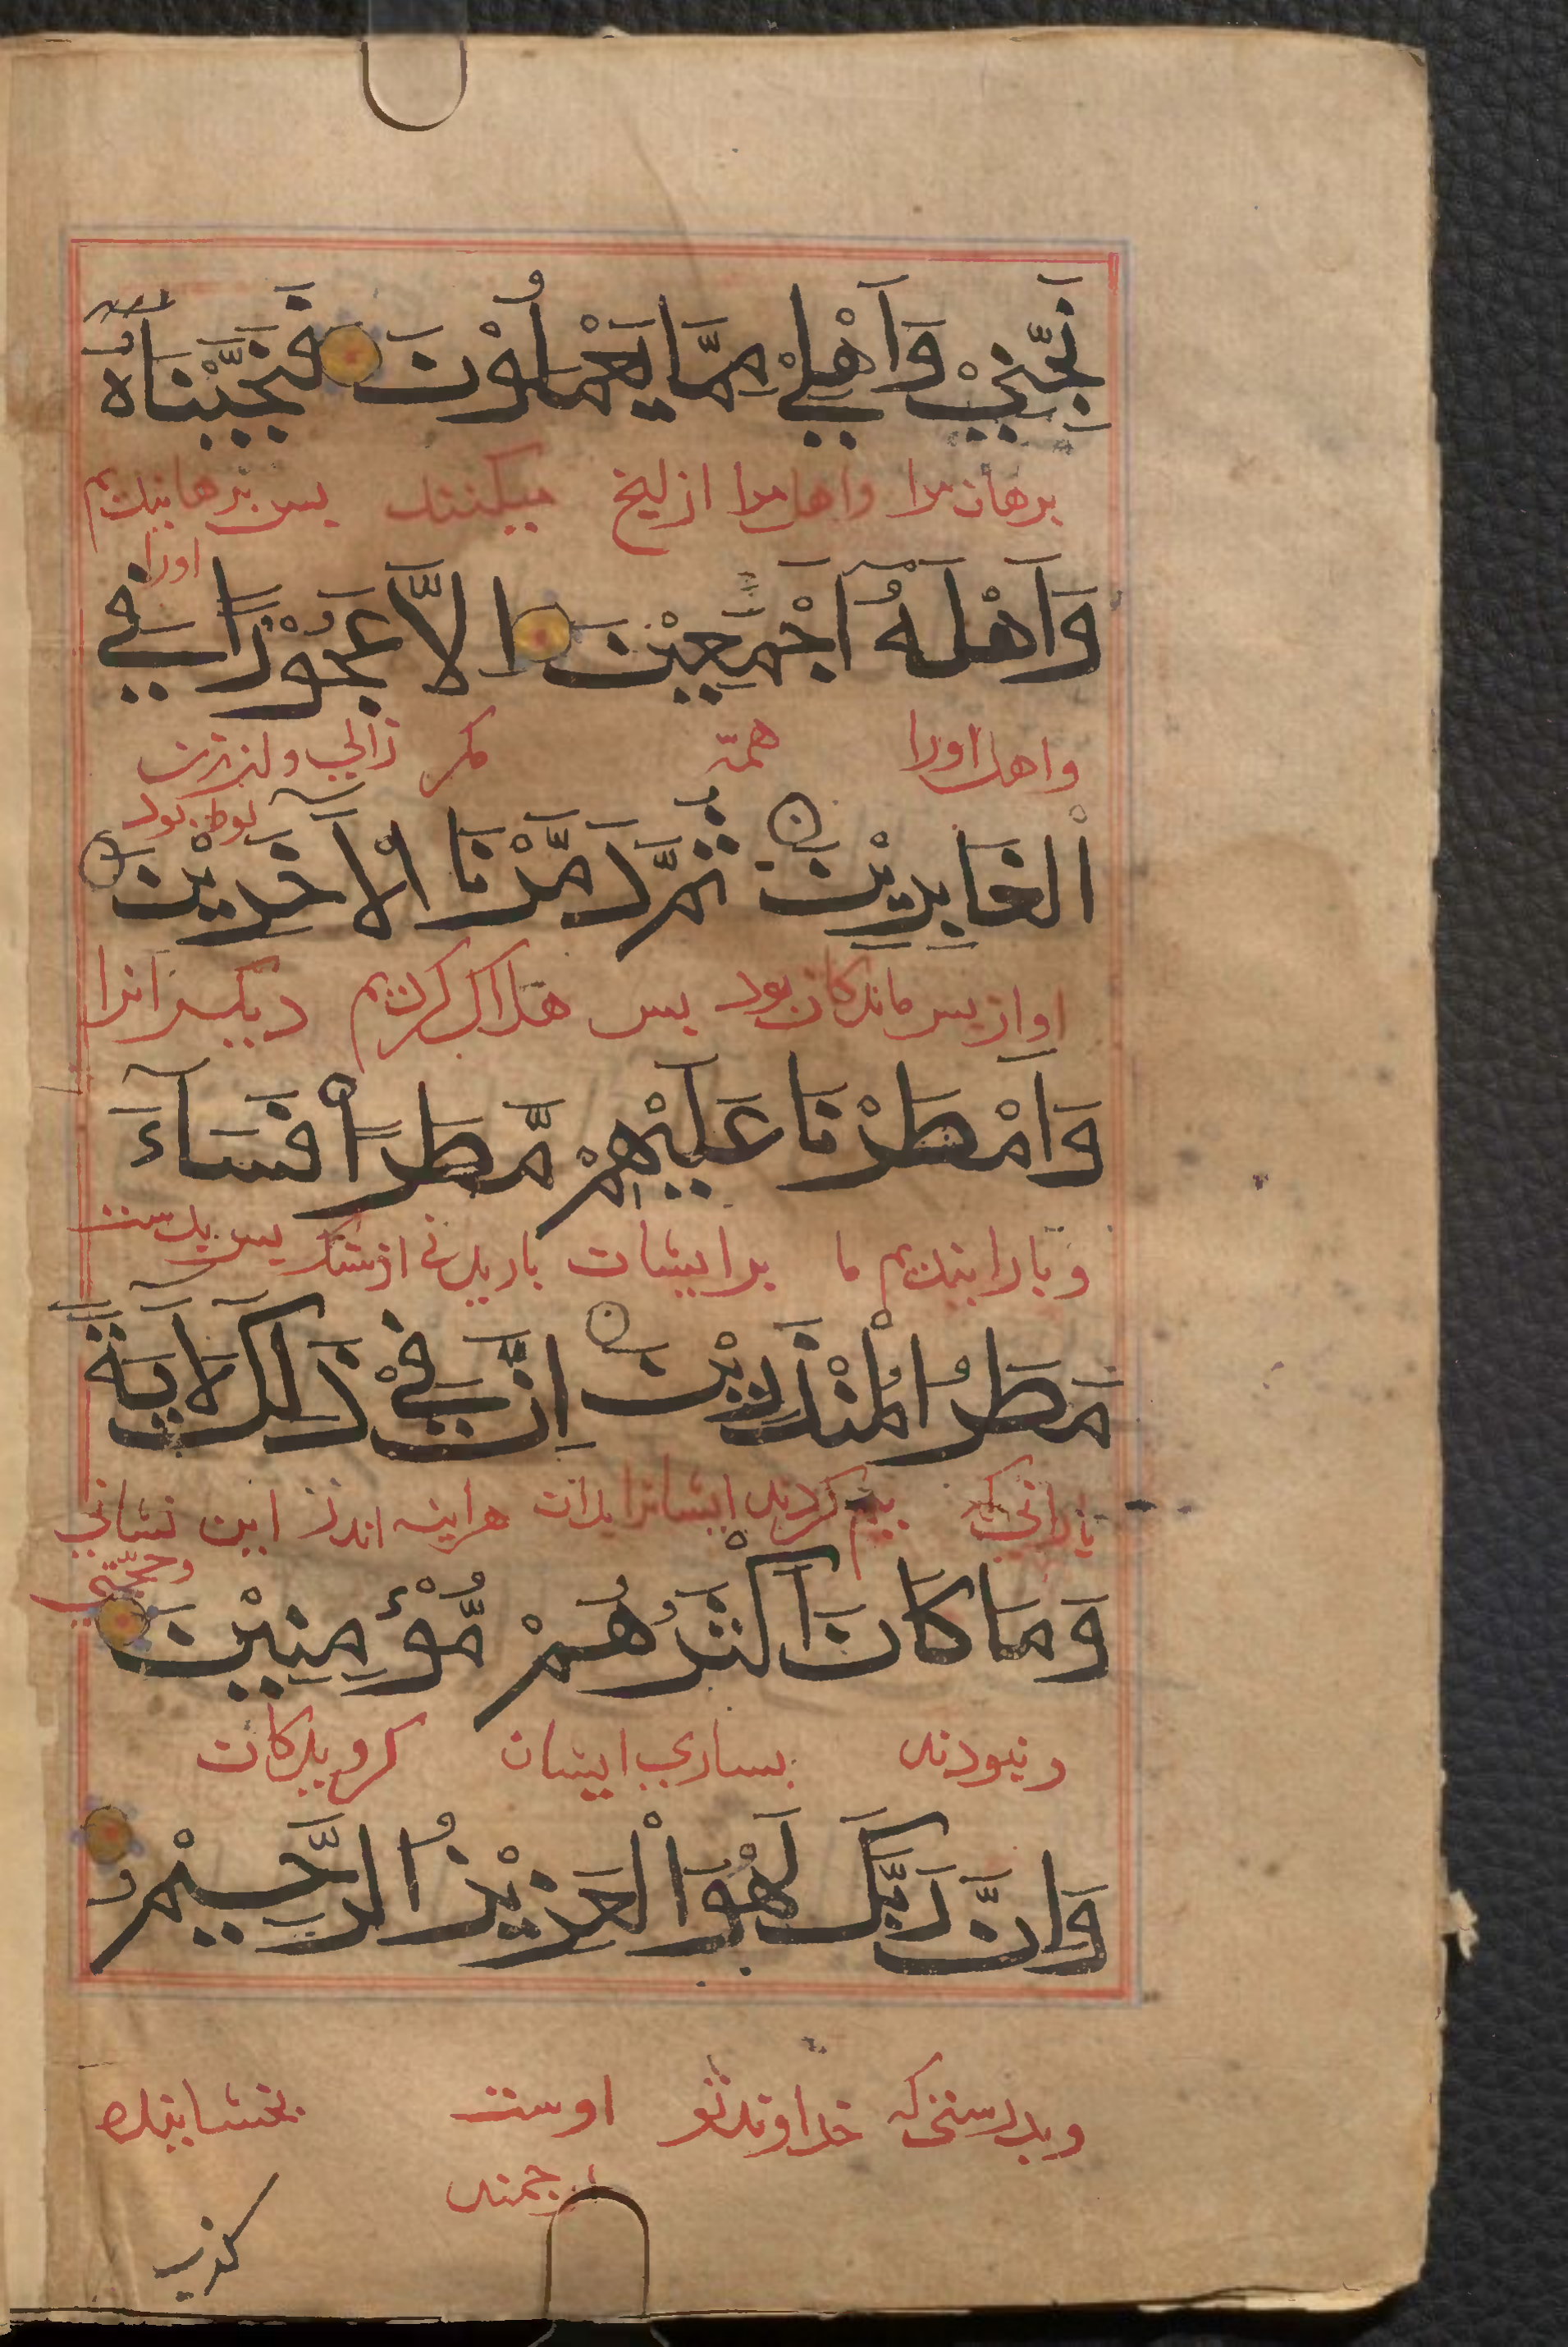 نَجِّنِيْ وَاَهْلِيْ مِمَّا يَعْمَلُوْنَ فَنَجَّيْنَاهُ
برهان مرا واهل مرا از انج میکنند بس برهانیدیم
اورا
وَاَهْلَهُ اَجْمَعِيْنَ اِلَّا عَجُوْزًا فِي
واهل اورا همه مکر زالي ولن زن
لوط بود
اْلغَابِرِيْنَ ثُمَّ دَمَّرْنَا اْلآخَرِيْنَ
او از بس ماندکان بود بس هلاک کردیم دیکرانرا
وَاَمْطَرْنَا عَلَيْهِمْ مَّطَرًا فَسَآءَ
و بارانیدیم ما برایشان بارانی از سنک بس بدست
مَطَرُ اْلمُنْذَرِيْنَ اِنَّ فِيْ ذَلِكَ لَآيَةً
بارانی که بیم کردند ایشانرا بدان هراینه اندر این نشانی
وحجّتي
وَمَا كَانَ اَكْثَرُهُمْ مُّؤْمِنِيْنَ
و نبودند بساري ایشان کرویدکان
وَاِنَّ رَبَّكَ لَهُوَ اْلعَزِيْزُ الرَّحِيْمُ
وبدرستی که خداوند تو اوست بخشاینده
رحمند
كذب